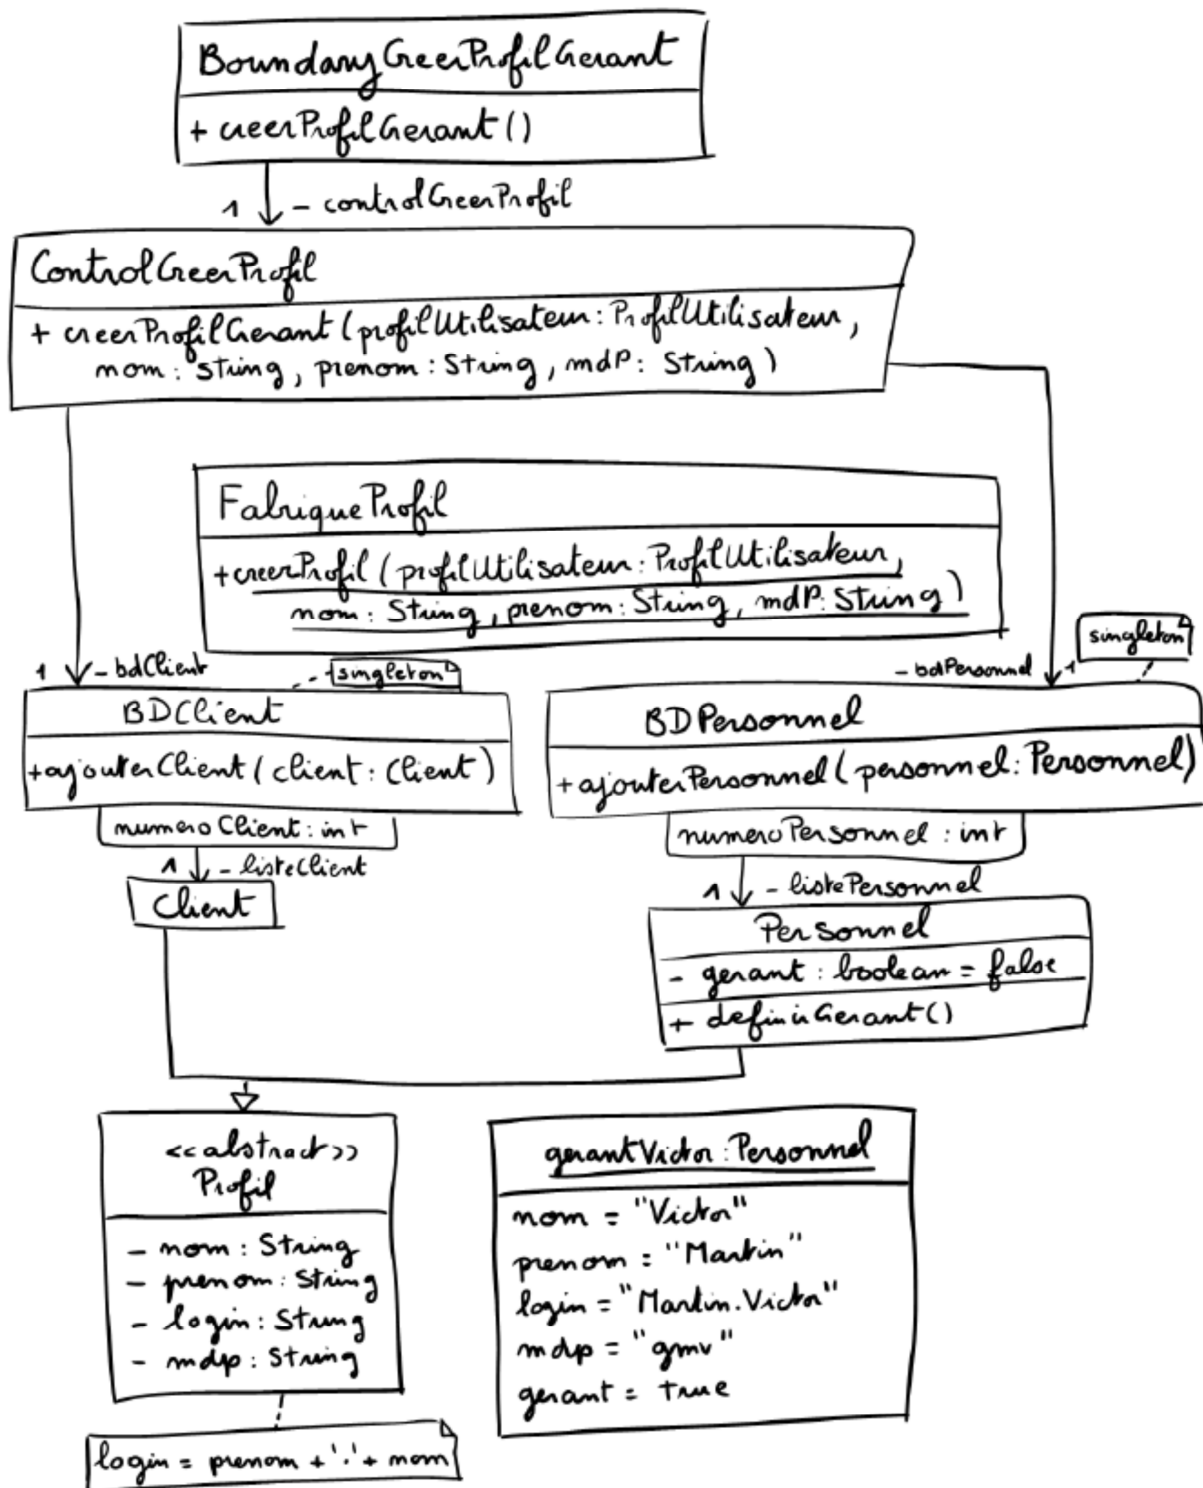 BoundaryCreerProfilGerant
+ creerProfilGerant()
1 - controlCreerProfil
ControlCreerProfil
+ creerProfilGerant(profilUtilisateur: ProfilUtilisateur,
nom: string, prenom: String, mdP: String)
FabriqueProfil
+creerProfil(profilUtilisateur: ProfilUtilisateur,
nom: String, prenom: String, mdP: String)
singleton
1 - bdClient
singleton
- bdPersonnel 1
BDClient
+ajouterClient(client: Client)
numeroClient: int
1 - listeClient
Client
BDPersonnel
+ajouterPersonnel(personnel: Personnel)
numeroPersonnel: int
1 - listePersonnel
Personnel
- gerant: boolean = false
+ definirGerant()
<<abstract>>
Profil
- nom: String
- prenom: String
- login: String
- mdp: String
login = prenom + '.' + nom
gerantVictor: Personnel
nom = "Victor"
prenom = "Martin"
login = "Martin.Victor"
mdp = "gmv"
gerant = true